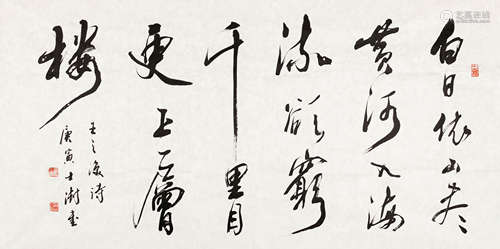 白日依山尽
黄河入海
流欲窮
千里目
更上一層
楼
王之渙诗
庚寅士澍书